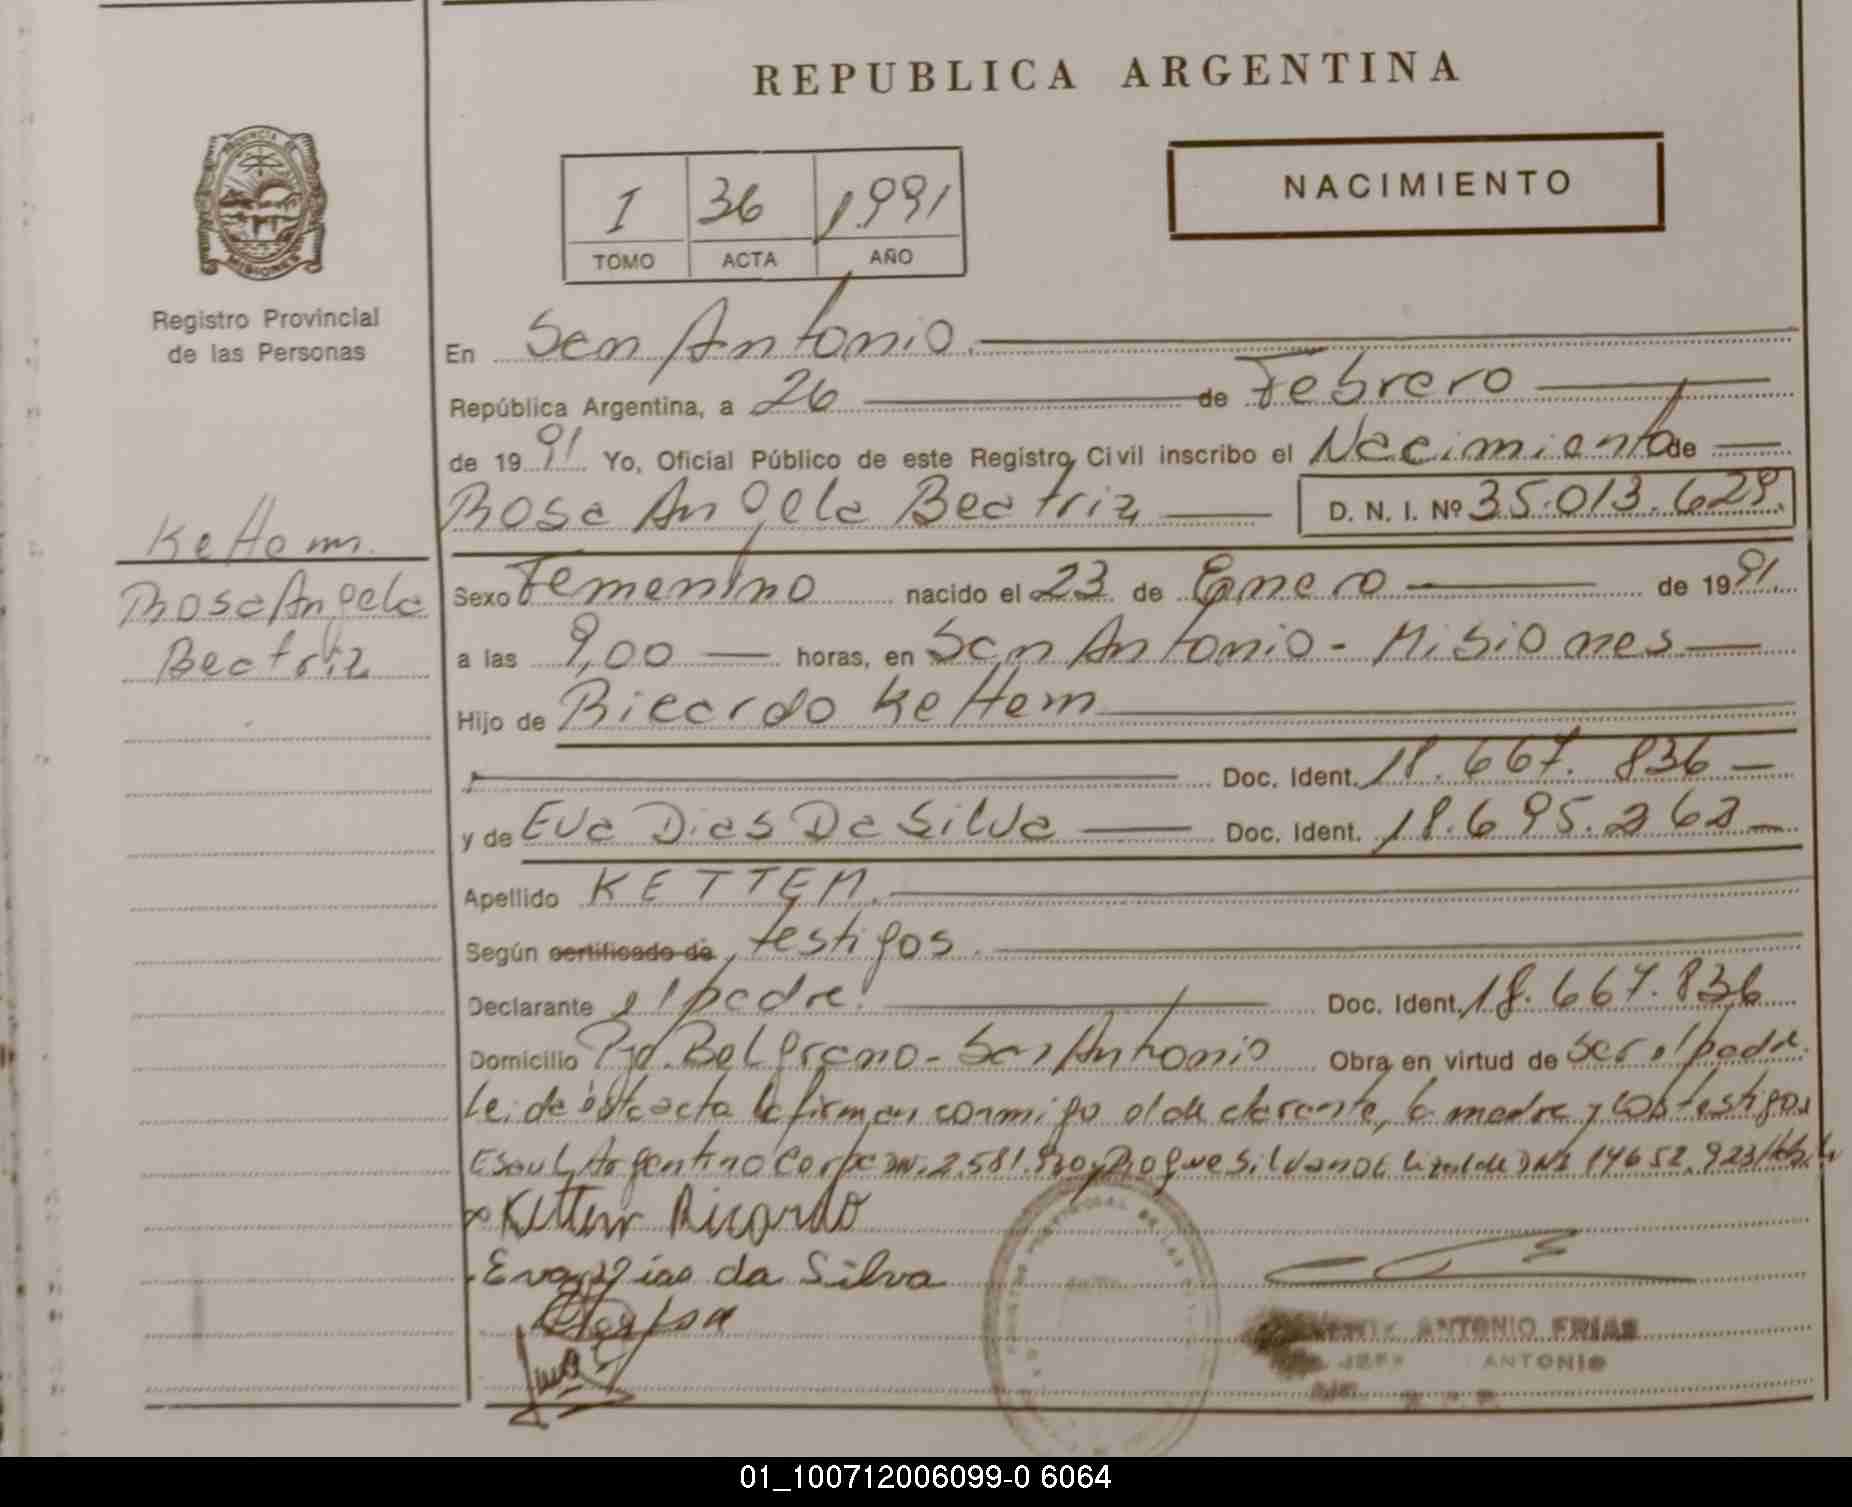 REPUBLICA ARGENTINA
NACIMIENTO
I 36 1.991
TOMO ACTA AÑO
PROVINCIA DE
MISIONES
Registro Provincial
de las Personas
En San Antonio.
República Argentina, a 26 de Febrero
de 1991 Yo, Oficial Público de este Registro Civil inscribo el Nacimiento de
Rosa Angela Beatriz D. N. I. Nº 35.013.629.
Kettem
Rosa Angela
Beatriz
Sexo Femenino nacido el 23 de Enero de 1991
a las 9,00 horas, en San Antonio - Misiones
Hijo de Ricardo Kettem
Doc. Ident. 18.667.836
y de Eva Dias Da Silva Doc. Ident. 18.695.262
Apellido KETTEM.
Según certificado de testigos.
Declarante el padre. Doc. Ident. 18.667.836
Domicilio Pje. Belgrano - San Antonio Obra en virtud de ser el padre.
Leida esta acta la firman conmigo el declarante, la madre y los testigos
Argentino 2.581. y Roque Silvano DNI 14652.923
Kettem Ricardo
Eva Dias da Silva
ANTONIO FRIAS
JEFE ANTONIO
01_100712006099-0 6064